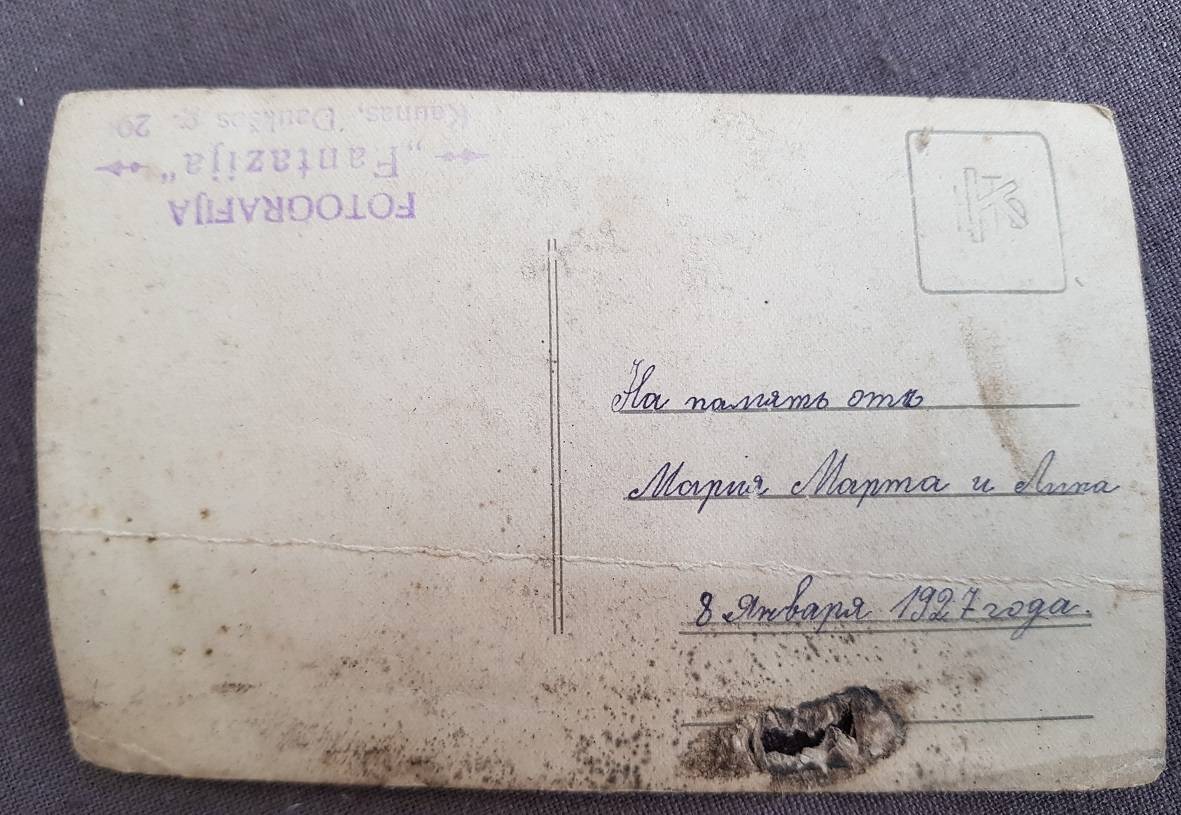 FOTOGRAFIJA
„Fantazija"
Kaunas, Daukšos g. 29
На память отъ
Мария Марта и Лика
8 Января 1927 года.